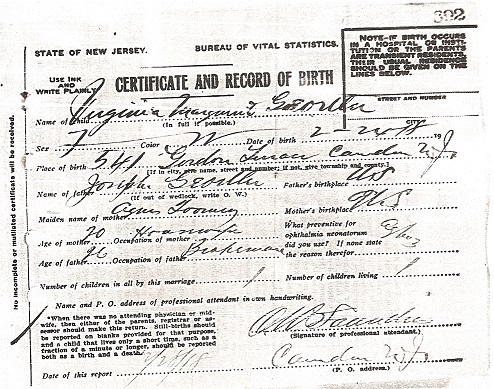 392
STATE OF NEW JERSEY.
BUREAU OF VITAL STATISTICS.
NOTE—IF BIRTH OCCURS
IN A HOSPITAL OR INSTI-
TUTION OR THE PARENTS
ARE TRANSIENT RESIDENTS,
THEIR USUAL RESIDENCE
SHOULD BE GIVEN ON THE
LINES BELOW.
USE INK
AND
WRITE PLAINLY
CERTIFICATE AND RECORD OF BIRTH
STREET AND NUMBER
CITY
Name of child Virginia Margaret
(In full if possible.)
Sex F Color W Date of birth 2-24-18 19
Place of birth 541 Gordon Terrace Camden N.J.
[If in city, give name, street and number; if not, give township and county.]
Name of father Joseph Father's birthplace US
(If out of wedlock, write O. W.)
Maiden name of mother Agnes Mother's birthplace US
Age of mother 20 Occupation of mother Housewife
What preventive for
ophthalmia neonatorum
did you use? If none state
the reason therefor
Age of father Occupation of father Brakeman
Number of children in all by this marriage 1 Number of children living 1
Name and P. O. address of professional attendant in own handwriting.
"When there was no attending physician or mid-
wife, then either of the parents, registrar or as-
sessor should make this return. Still-births should
be reported on blanks provided for that purpose,
and a child that lives only a short time, such as a
fraction of a minute or longer, should be reported
both as a birth and a death.
(Signature of professional attendant.)
Camden N.J.
(P. O. address.)
Date of this report
No incomplete or mutilated certificate will be received.